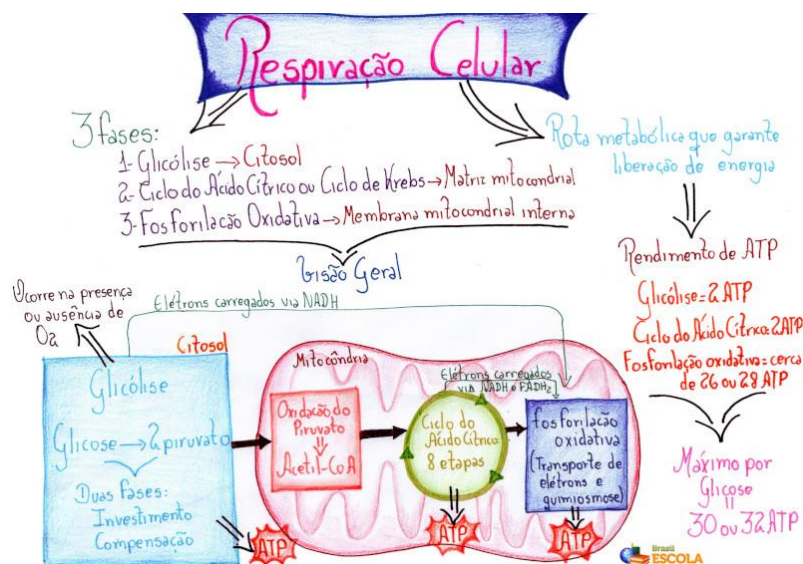 Respiração Celular
3 fases:
1- Glicólise → Citosol
2- Ciclo do Ácido Cítrico ou Ciclo de Krebs → Matriz mitocondrial
3- Fosforilação Oxidativa → Membrana mitocondrial interna
Rota metabólica que garante
liberação de energia
Rendimento de ATP
Glicólise = 2 ATP
Ciclo do Ácido Cítrico: 2 ATP
Fosforilação oxidativa = cerca
de 26 ou 28 ATP
Máximo por
Glicose
=
30 ou 32 ATP
Visão Geral
Ocorre na presença
ou ausência de
O2
Elétrons carregados via NADH
Citosol
Glicólise
Glicose → 2 piruvato
Duas fases:
Investimento
Compensação
ATP
Mitocôndria
Oxidação do
Piruvato
Acetil-CoA
Elétrons carregados
VIA NADH e FADH2
Ciclo do
Ácido Cítrico:
8 etapas
ATP
Fosforilação
oxidativa
(Transporte de
elétrons e
quimiosmose)
ATP
Brasil
ESCOLA